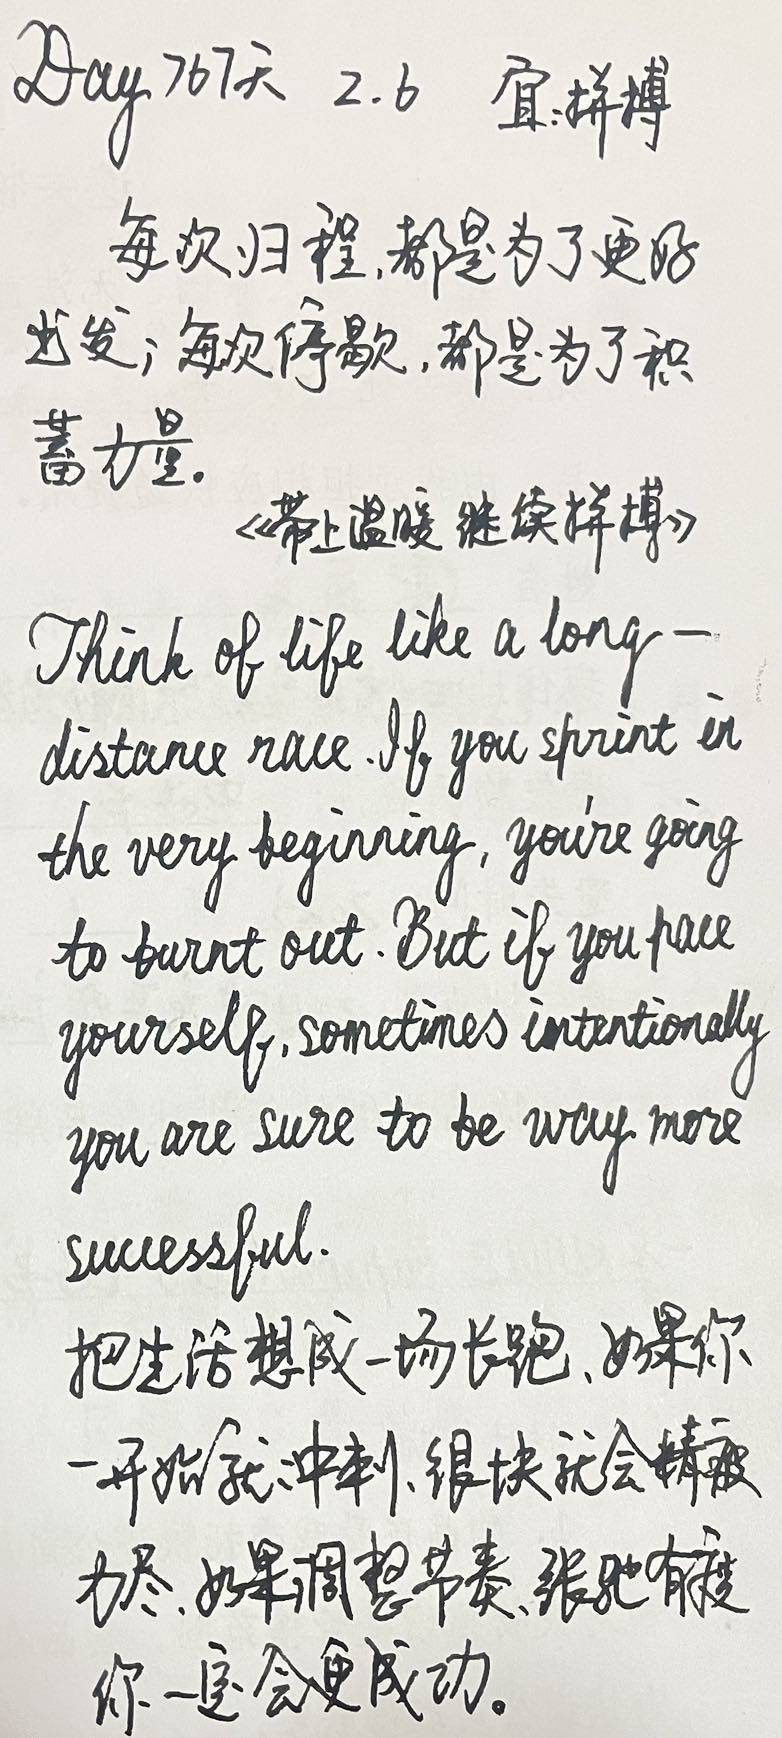 Day 767天 2.6 宜:拼搏
每次归程,都是为了更好
出发;每次停歇,都是为了积
蓄力量。
《带上温暖 继续拼搏》
Think of life like a long-
distance race. If you sprint in
the very beginning, you're going
to burnt out. But if you pace
yourself, sometimes intentionally
you are sure to be way more
successful.
把生活想成一场长跑、如果你
一开始就冲刺、很快就会精疲
力尽、如果调整节奏、张弛有度
你一定会更成功。